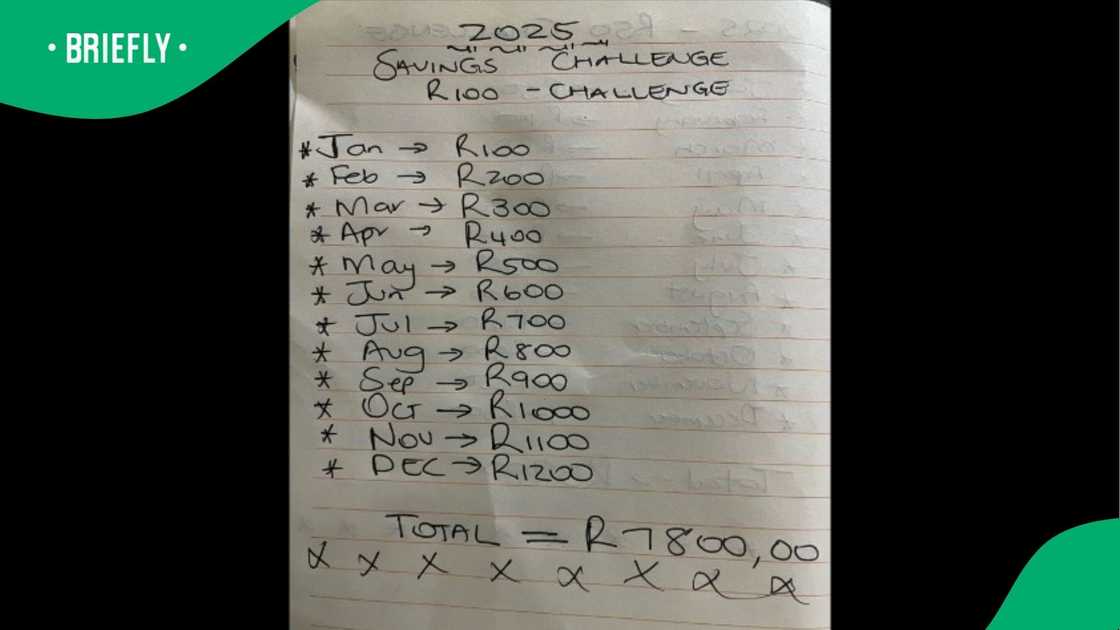 • BRIEFLY •
2025
SAVINGS CHALLENGE
R100 - CHALLENGE
* Jan → R100
* Feb → R200
* Mar → R300
* Apr → R400
* May → R500
* Jun → R600
* Jul → R700
* Aug → R800
* Sep → R900
* Oct → R1000
* Nov → R1100
* DEC → R1200
TOTAL = R7800,00
x x x x x x x x